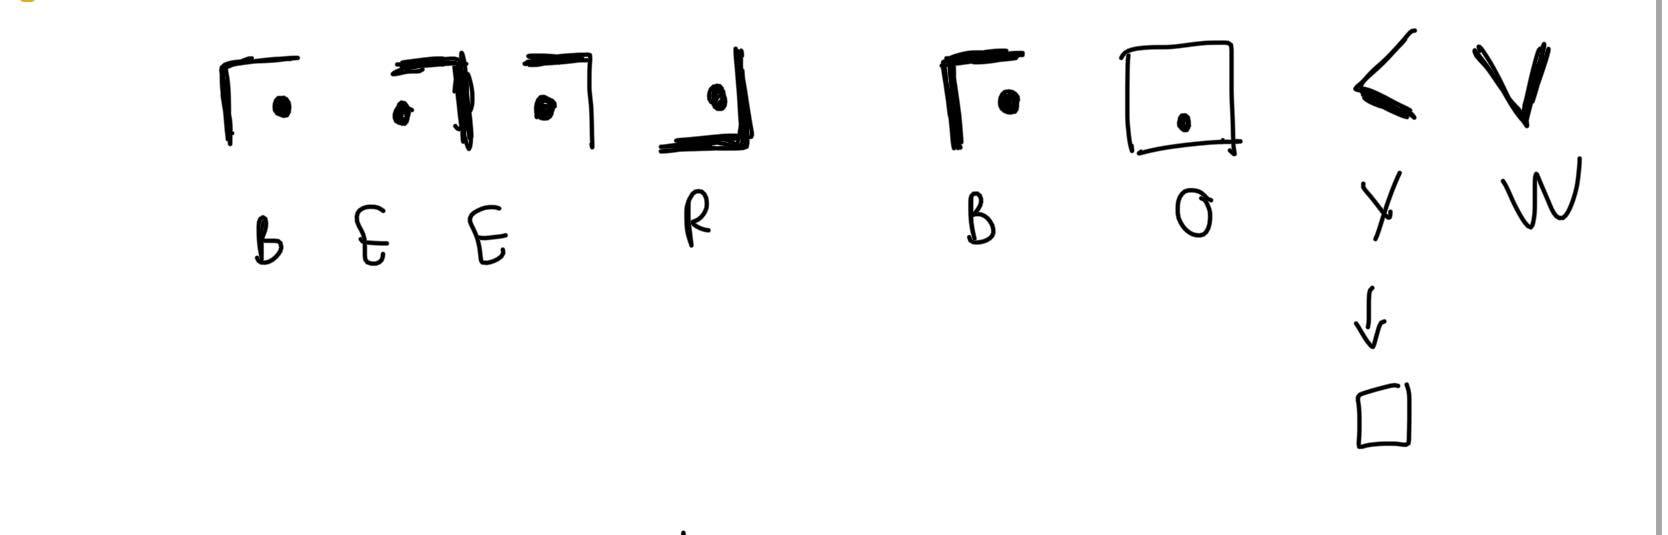 B E E R B O Y W